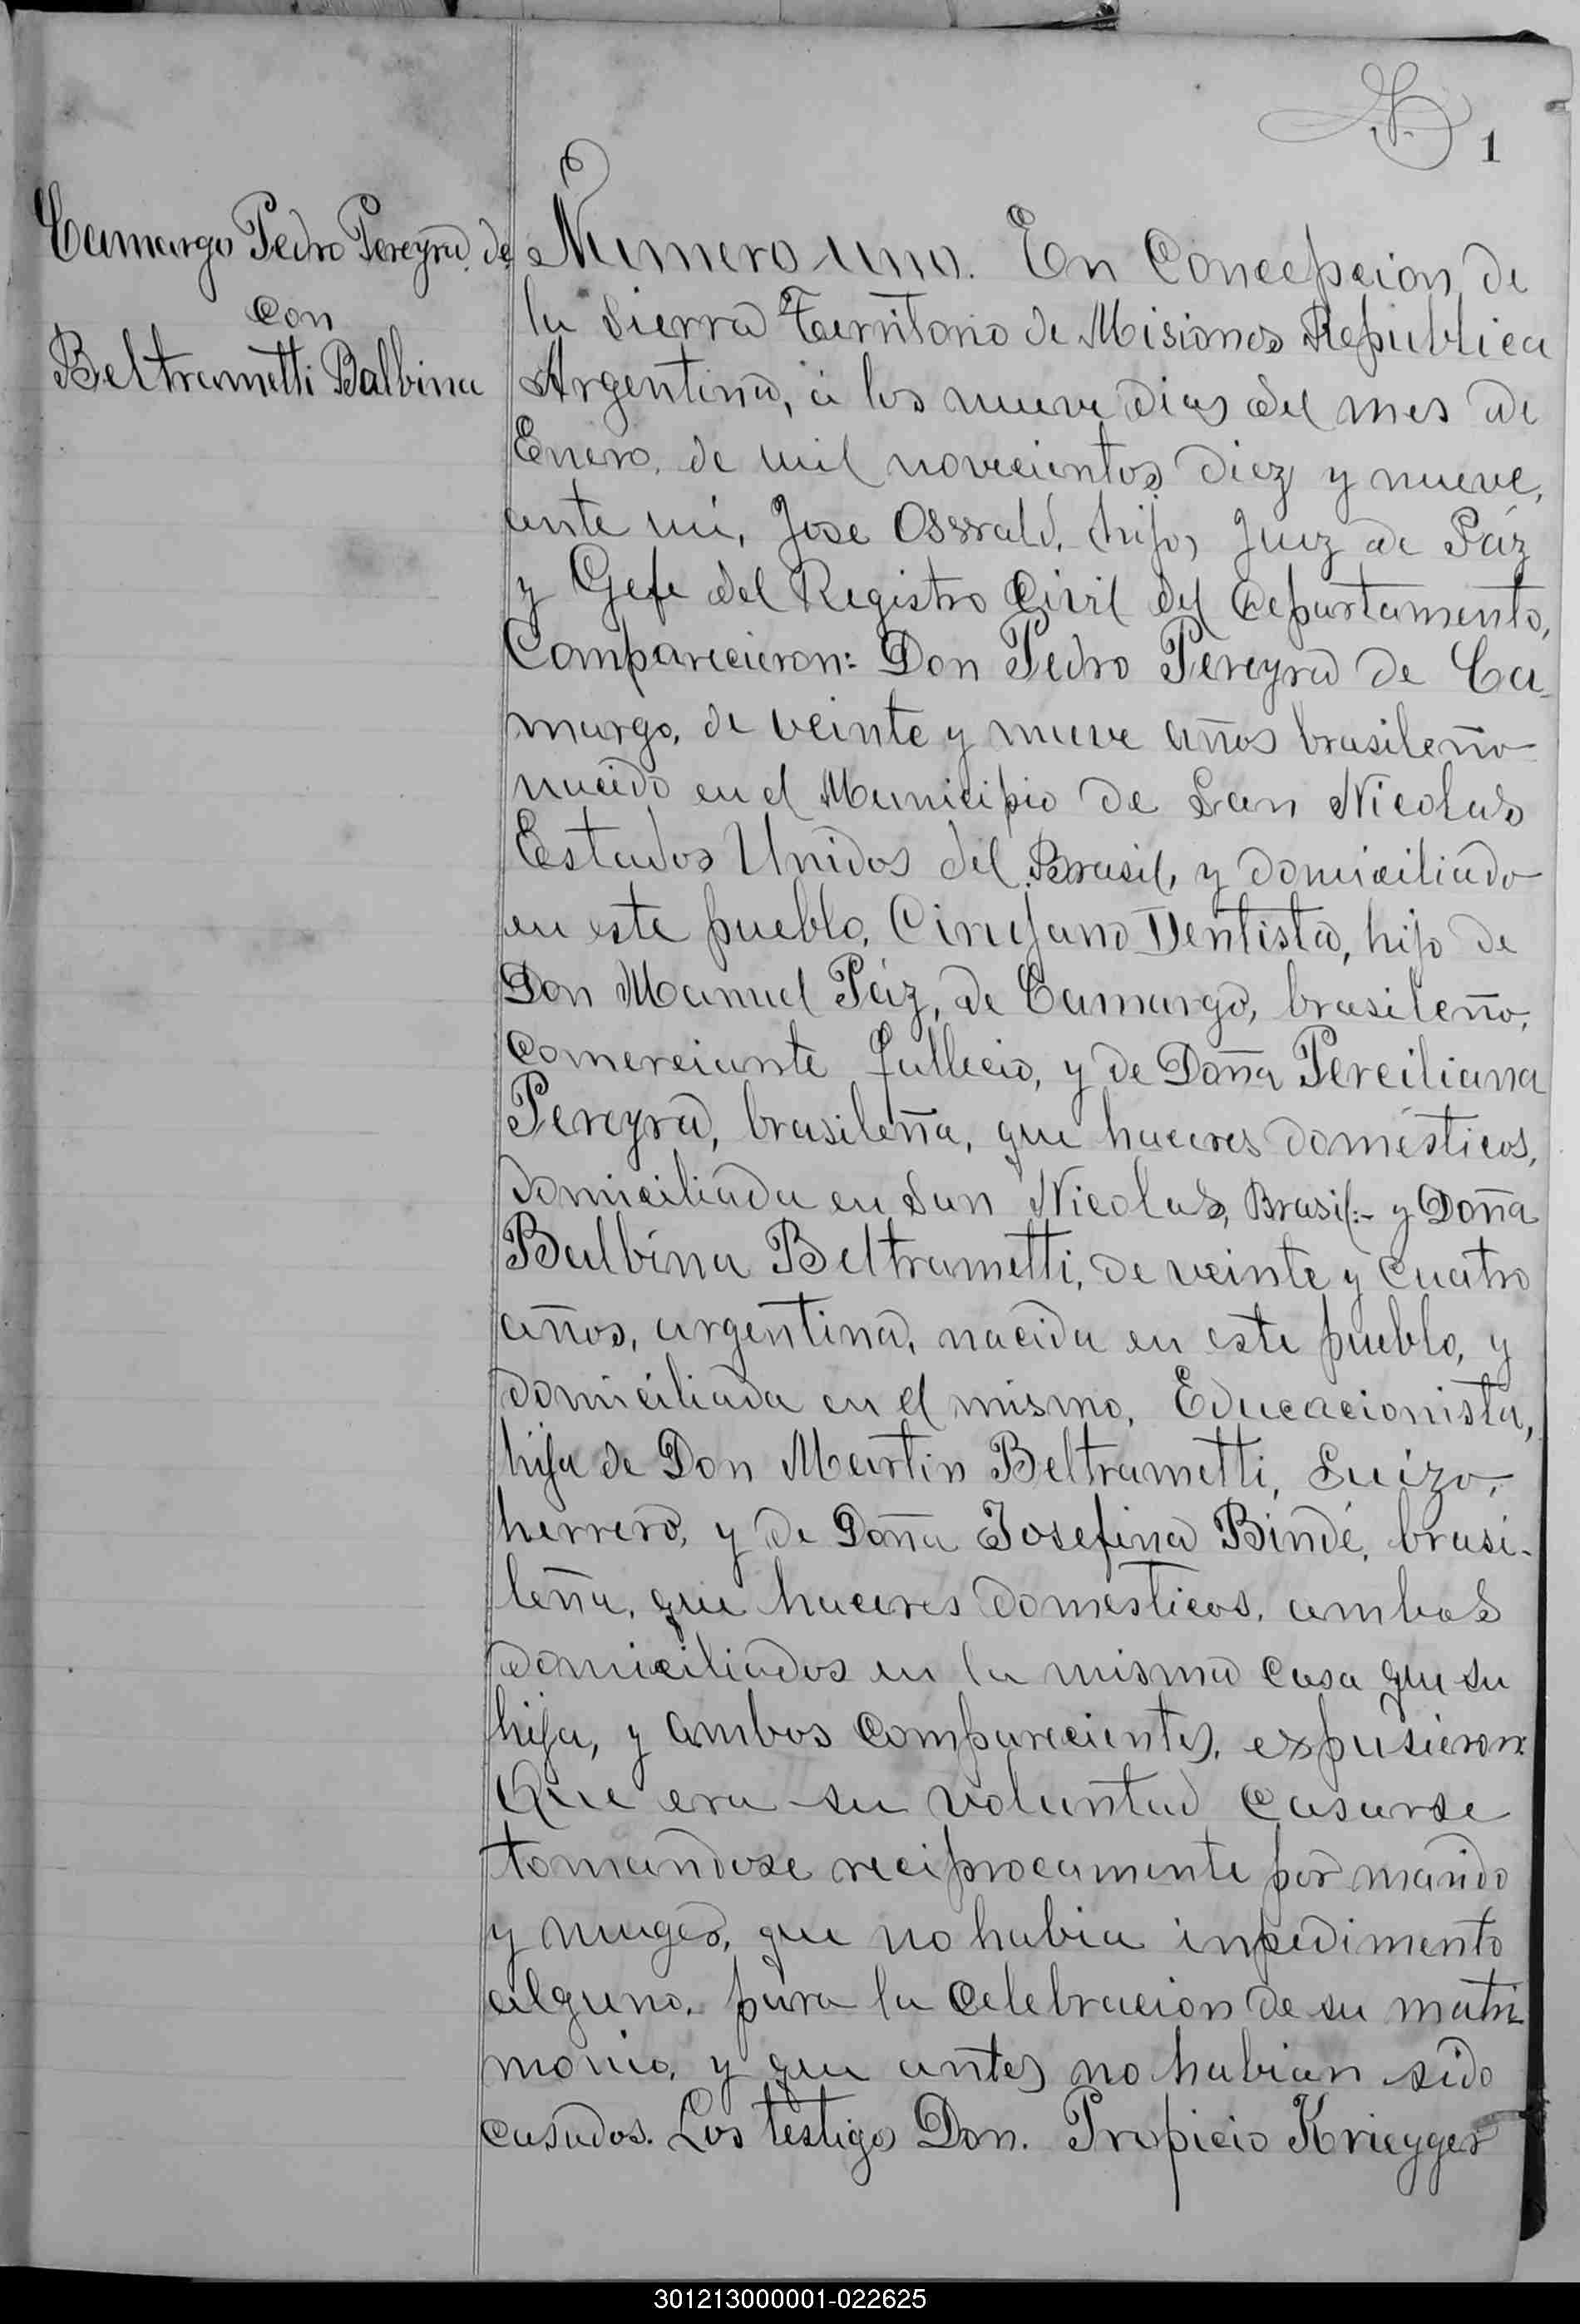 1
Camargo Pedro Pereyra de
con
Beltrametti Balbina
Numero uno. En Concepcion de
la Sierra Territorio de Misiones Republica
Argentina, á los nueve dias del mes de
Enero, de mil novecientos diez y nueve,
ante mi, Jose Osswald, hijo, Juez de Páz
y Gefe del Registro Civil del Departamento,
Comparecieron: Don Pedro Pereyra de Ca-
margo, de veinte y nueve años brasileño
nacido en el Municipio de San Nicolas
Estados Unidos del Brasil, y domiciliado
en este pueblo, Cirujano Dentista, hijo de
Don Manuel Páz, de Camargo, brasileño,
Comerciante fallecio, y de Doña Perciliana
Pereyra, brasileña, que haceres domésticos,
domiciliada en San Nicolas, Brasil:- y Doña
Balbina Beltrametti, de veinte y cuatro
años, argentina, nacida en este pueblo, y
domiciliada en el mismo, Educacionista,
hija de Don Martin Beltrametti, Suizo,
herrero, y de Doña Josefina Bindé, brasi-
leña, que haceres domesticos, ambos
domiciliados en la misma casa que su
hija, y ambos comparecientes, expusieron:
Que era su voluntad casarse
tomandose reciprocamente por marido
y muger, que no habia inpedimento
alguno, para la celebracion de su matri-
monio, y que antes no habian sido
casados. Los testigos Don. Propicio Krieyger
301213000001-022625